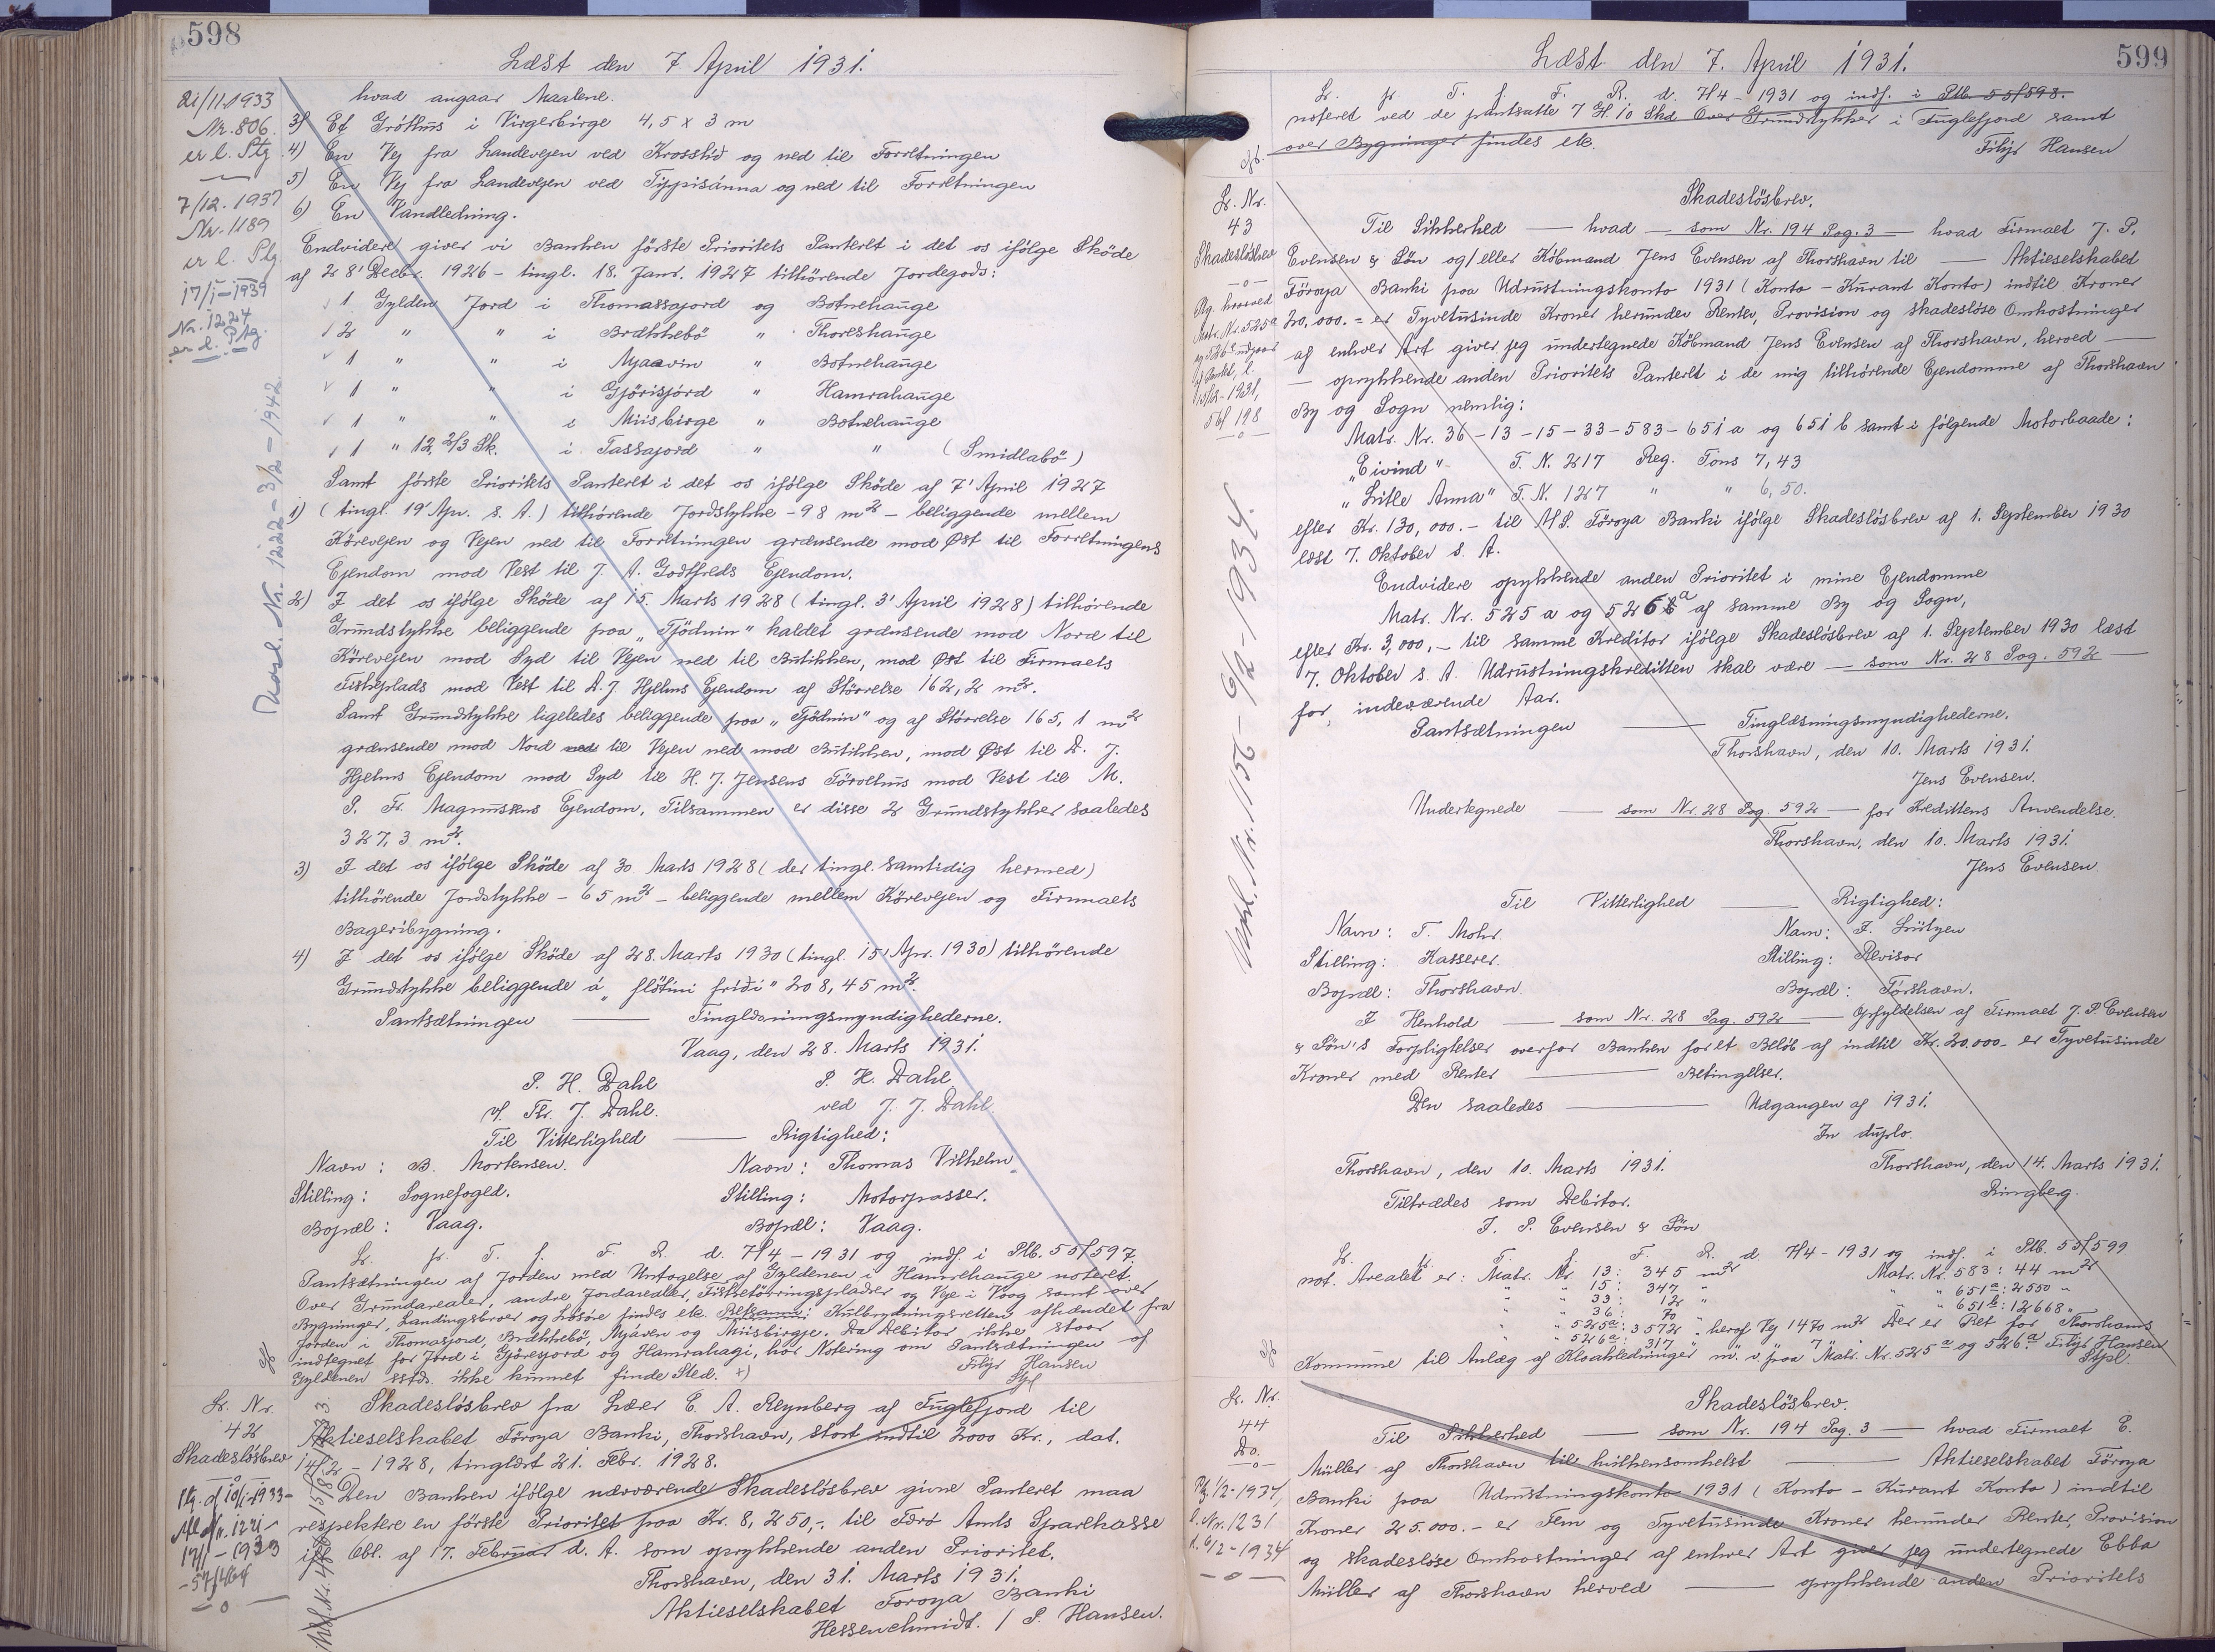 598
Læst den 7 April 1931.
21/11.1933
Nr. 806.
er l. Ptg.
7/12. 1937
Nr. 1189
er l. Ptg.
17/1-1939
Nr. 1224
er l. Ptg.
Nr. 1222 - 3/2 - 1942.
hvad angaar Maalene.
3) Et Gróthús i Virgerbirge 4,5 x 3 m
4) En Vej fra Landevejen ved Krosslid og ned til Forretningen
5) En Vej fra Landevejen ved Tippisánna og ned til Forretningen
6) En Vandledning.
Endvidere giver vi Banken første Prioritets Panteret i det os ifølge Skøde
af 28' Decbr. 1926 - tingl. 18. Janr. 1927 tilhørende Jordegods:
1 Gylden Jord i Thomassajord og Botnehauge
2 " " i Brækkebø " Thoreshauge
1 " " i Mjaavin " Botnehauge
1 " " i Gjörisjord " Hamrahauge
1 " " i Miisbirge " Botnehauge
1 " 12 2/3 Sk. i Tassajord " " (Smidlabø)
Samt første Prioritets Panteret i det os ifølge Skøde af 7' April 1927
1) (tingl. 19' Apr. s. A.) tilhørende Jordstykke - 98 m² - beliggende mellem
Kørevejen og Vejen ned til Forretningen grænsende mod Øst til Forretningens
Ejendom mod Vest til J. A. Godtfreds Ejendom.
2) I det os ifølge Skøde af 15. Marts 1928 (tingl. 3' April 1928) tilhørende
Grundstykke beliggende paa "Tjødnin" kaldet grænsende mod Nord til
Kørevejen mod Syd til Vejen ned til Butikken, mod Øst til Firmaets
Fiskeplads mod Vest til D. J. Hjelms Ejendom af Størrelse 162,2 m².
Samt Grundstykke ligeledes beliggende paa "Tjødnin" og af Størrelse 165,1 m²
grænsende mod Nord til Vejen ned mod Butikken, mod Øst til D. J.
Hjelms Ejendom mod Syd til H. J. Jensens Tørvehus mod Vest til M.
P. Fr. Magnussens Ejendom. Tilsammen er disse 2 Grundstykker saaledes
327,3 m².
3) I det os ifølge Skøde af 30. Marts 1928 (der tingl. samtidig hermed)
tilhørende Jordstykke - 65 m² - beliggende mellem Kørevejen og Firmaets
Bageribygning.
4) I det os ifølge Skøde af 28. Marts 1930 (tingl. 15' Apr. 1930) tilhørende
Grundstykke beliggende á 208,45 m².
Pantsætningen — Tinglæsningsmyndighederne.
Vaag, den 28. Marts 1931.
P. H. Dahl P. H. Dahl
v/ Thr. J. Dahl. ved J. J. Dahl.
Til Vitterlighed — Rigtighed:
Navn: B. Mortensen. Navn: Thomas Vilhelm
Stilling: Sognefoged. Stilling: Motorpasser.
Bopæl: Vaag. Bopæl: Vaag.
L. fr. T. f. F. R. d. 7/4 - 1931 og indf. i Ptb. 55/597.
Pantsætningen af Jorden med Untagelse af Gyldenen i Hamrehauge noteret.
Over Grundarealer, andre Jordarealer, Fisketørringspladser og Veje i Vaag samt over
Bygninger, Landingsbroer og Løsøre findes etc. Bekannt: Kulbrydningsretten afhændet fra
Jorden i Thomasjord, Brækkebø, Mjáven og Miisbirgje. Da Debitor ikke staar
indtegnet for Jord i Gjöresjord og Hamrahagi, har Notering om Pantsætningen af
Gyldenen sstds. ikke kunnet finde Sted. x) Filip Hansen
Spl
L. Nr.
42
Skadesløsbrev
Ptg. d 10/1-1933
Skadesløsbrev fra Lærer E. A. Reynberg af Fuglefjord til
Aktieselskabet Föroya Banki, Thorshavn, stort indtil 2000 Kr., dat.
14/2 - 1928, tinglæst 21. Febr. 1928.
Den Banken ifølge nærværende Skadesløsbrev givne Panteret maa
respektere en første Prioritet paa Kr. 8,250,-. til Færø Amts Sparekasse
ifl. Obl. af 17. Februar d. A. som oprykkende anden Prioritet.
Thorshavn, den 31. Marts 1931.
Aktieselskabet Foroya Banki
Hessenschmidt. / P. Hansen.
599
Læst den 7. April 1931.
L. fr. T. f. F. R. d. 7/4 - 1931 og indf. i Ptb. 55/598.
noteret ved de pantsatte 7 G. 10 Skd. Over Grundstykker i Fuglefjord samt
over Bygninger findes etc.
Filip Hansen
L. Nr.
43
Skadesløsbrev
Matr. Nr. 525a
15/12-1931,
56/198
Nr. 1156 - 6/2 - 1934.
Skadesløsbrev.
Til Sikkerhed — hvad — som Nr. 194 Pag. 3 — hvad Firmaet J. P.
Evensen & Søn og/eller Købmand Jens Evensen af Thorshavn til — Aktieselskabet
Föroya Banki paa Udrustningskonto 1931 (Konto - Kurant Konto) indtil Kroner
20,000.- er Tyvetusinde Kroner herunder Renter, Provision og skadesløse Omkostninger
af enhver Art giver jeg undertegnede Købmand Jens Evensen af Thorshavn, herved —
— oprykkende anden Prioritets Panteret i de mig tilhørende Ejendomme af Thorshavn
By og Sogn nemlig:
Matr. Nr. 36 - 13 - 15 - 33 - 583 - 651 a og 651 b samt i følgende Motorbaade:
"Eivind" T. N. 217 Reg. Tons 7,43
"Litle Anna" T. N. 127 " " 6,50.
efter Kr. 130,000.- til A/S. Föroya Banki ifølge Skadesløsbrev af 1. September 1930
læst 7. Oktober s. A.
Endvidere oprykkende anden Prioritet i mine Ejendomme
Matr. Nr. 525 a og 526 a af samme By og Sogn,
efter Kr. 3,000,- til samme Kreditor ifølge Skadesløsbrev af 1. September 1930 læst
7. Oktober s. A. Udrustningskreditten skal være — som Nr. 28 Pag. 592 —
for indeværende Aar.
Pantsætningen — Tinglæsningsmyndighederne.
Thorshavn, den 10. Marts 1931.
Jens Evensen.
Undertegnede — som Nr. 28 Pag. 592 — for Kredittens Anvendelse.
Thorshavn, den 10. Marts 1931.
Jens Evensen.
Til Vitterlighed — Rigtighed:
Navn: T. Mohr. Navn: F. Lützen
Stilling: Kasserer. Stilling: Revisor
Bopæl: Thorshavn. Bopæl: Tórshavn.
I Henhold — som Nr. 28 Pag. 592 — Opfyldelsen af Firmaet J. P. Evensen
& Søn's Forpligtelser overfor Banken for et Beløb af indtil Kr. 20.000- er Tyvetusinde
Kroner med Renter — Betingelser.
Den saaledes — Udgangen af 1931.
In duplo.
Thorshavn, den 10. Marts 1931. Thorshavn, den 14. Marts 1931.
Tiltrædes som Debitor. Ringberg.
J. P. Evensen & Søn
L. fr. T. f. F. R. d. 7/4 - 1931 og indf. i Ptb. 55/599
not. Arealet er: Matr. Nr. 13: 345 m² Matr. Nr. 583: 44 m²
" " 15: 347 " " " 651a: 2550 "
" " 33: 12 " " " 651b: 12668 "
" " 36: 70 "
" " 525a: 3572 " heraf Vej 1470 m² Der er Ret for Thorshavns
" " 526a: 317 "
Kommune til Anlæg af Kloakledninger m. v. paa Matr. Nr. 525a og 526a. Filip Hansen
Spl.
L. Nr.
44
Do.
Ptg. 1/2-1934,
l. Nr. 1231
d. 6/2-1934
Skadesløsbrev.
Til Sikkerhed — som Nr. 194 Pag. 3 — hvad Firmaet E.
Müller af Thorshavn til hvilkensomhelst — Aktieselskabet Föroya
Banki paa Udrustningskonto 1931 (Konto - Kurant Konto) indtil
Kroner 25.000.- er Fem og Tyvetusinde Kroner herunder Renter, Provision
og skadesløse Omkostninger af enhver Art giver jeg undertegnede Ebba
Müller af Thorshavn herved — oprykkende anden Prioritets